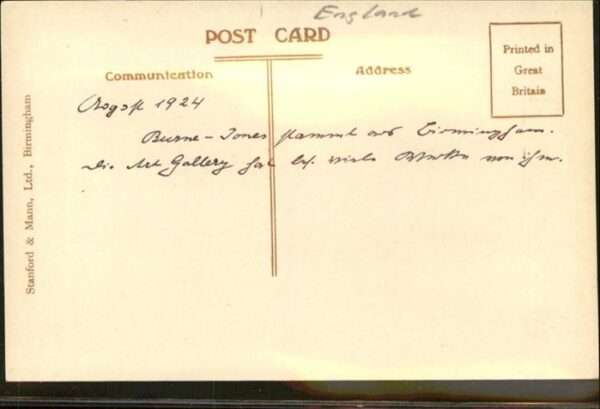 England
POST CARD
Communication
Address
Printed in
Great
Britain
August 1924
Burne-Jones stammt aus Birmingham.
Die Art Gallery hat viele von ihm.
Stanford & Mann, Ltd., Birmingham